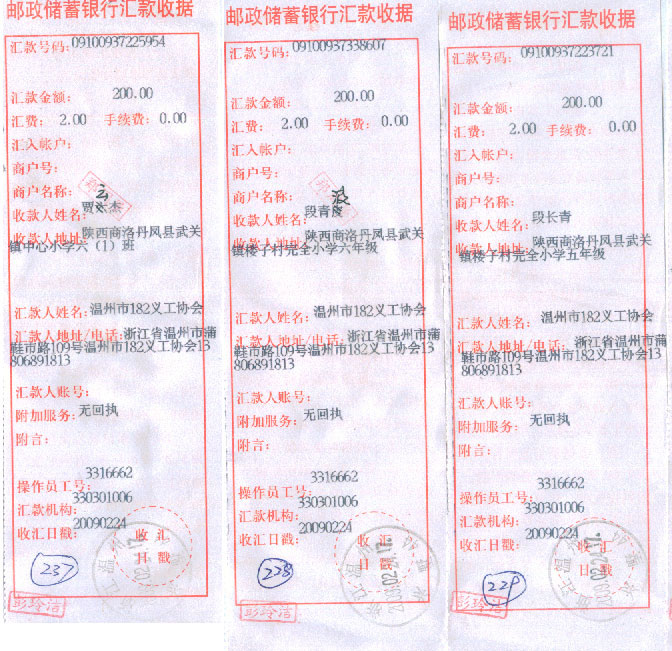 邮政储蓄银行汇款收据
汇款号码:09100937225954
汇款金额:200.00
汇费: 2.00 手续费: 0.00
汇入帐户:
商户号:
商户名称:
云
收款人姓名:贾 杰
收款人地址:陕西商洛丹凤县武关
镇中心小学六（1）班
汇款人姓名:温州市182义工协会
汇款人地址/电话:浙江省温州市蒲
鞋市路109号温州市182义工协会13
806891813
汇款人账号:
附加服务:无回执
附言:
操作员工号:3316662
汇款机构:330301006
收汇日戳:20090224
收汇
日戳
237
彭玲洁
邮政储蓄银行汇款收据
汇款号码:09100937338607
汇款金额:200.00
汇费: 2.00 手续费: 0.00
汇入帐户:
商户号:
商户名称:
收款人姓名:段青
收款人地址:陕西商洛丹凤县武关
镇楼子村完全小学六年级
汇款人姓名:温州市182义工协会
汇款人地址/电话:浙江省温州市蒲
鞋市路109号温州市182义工协会13
806891813
汇款人账号:
附加服务:无回执
附言:
操作员工号:3316662
汇款机构:330301006
收汇日戳:20090224
收汇
日戳
2009.02.24.17
228
彭玲洁
邮政储蓄银行汇款收据
汇款号码:09100937223721
汇款金额:200.00
汇费: 2.00 手续费: 0.00
汇入帐户:
商户号:
商户名称:
收款人姓名:段长青
收款人地址:陕西商洛丹凤县武关
镇楼子村完全小学五年级
汇款人姓名:温州市182义工协会
汇款人地址/电话:浙江省温州市蒲
鞋市路109号温州市182义工协会13
806891813
汇款人账号:
附加服务:无回执
附言:
操作员工号:3316662
汇款机构:330301006
收汇日戳:20090224
收汇
日戳
2009.02.24.17
229
彭玲洁